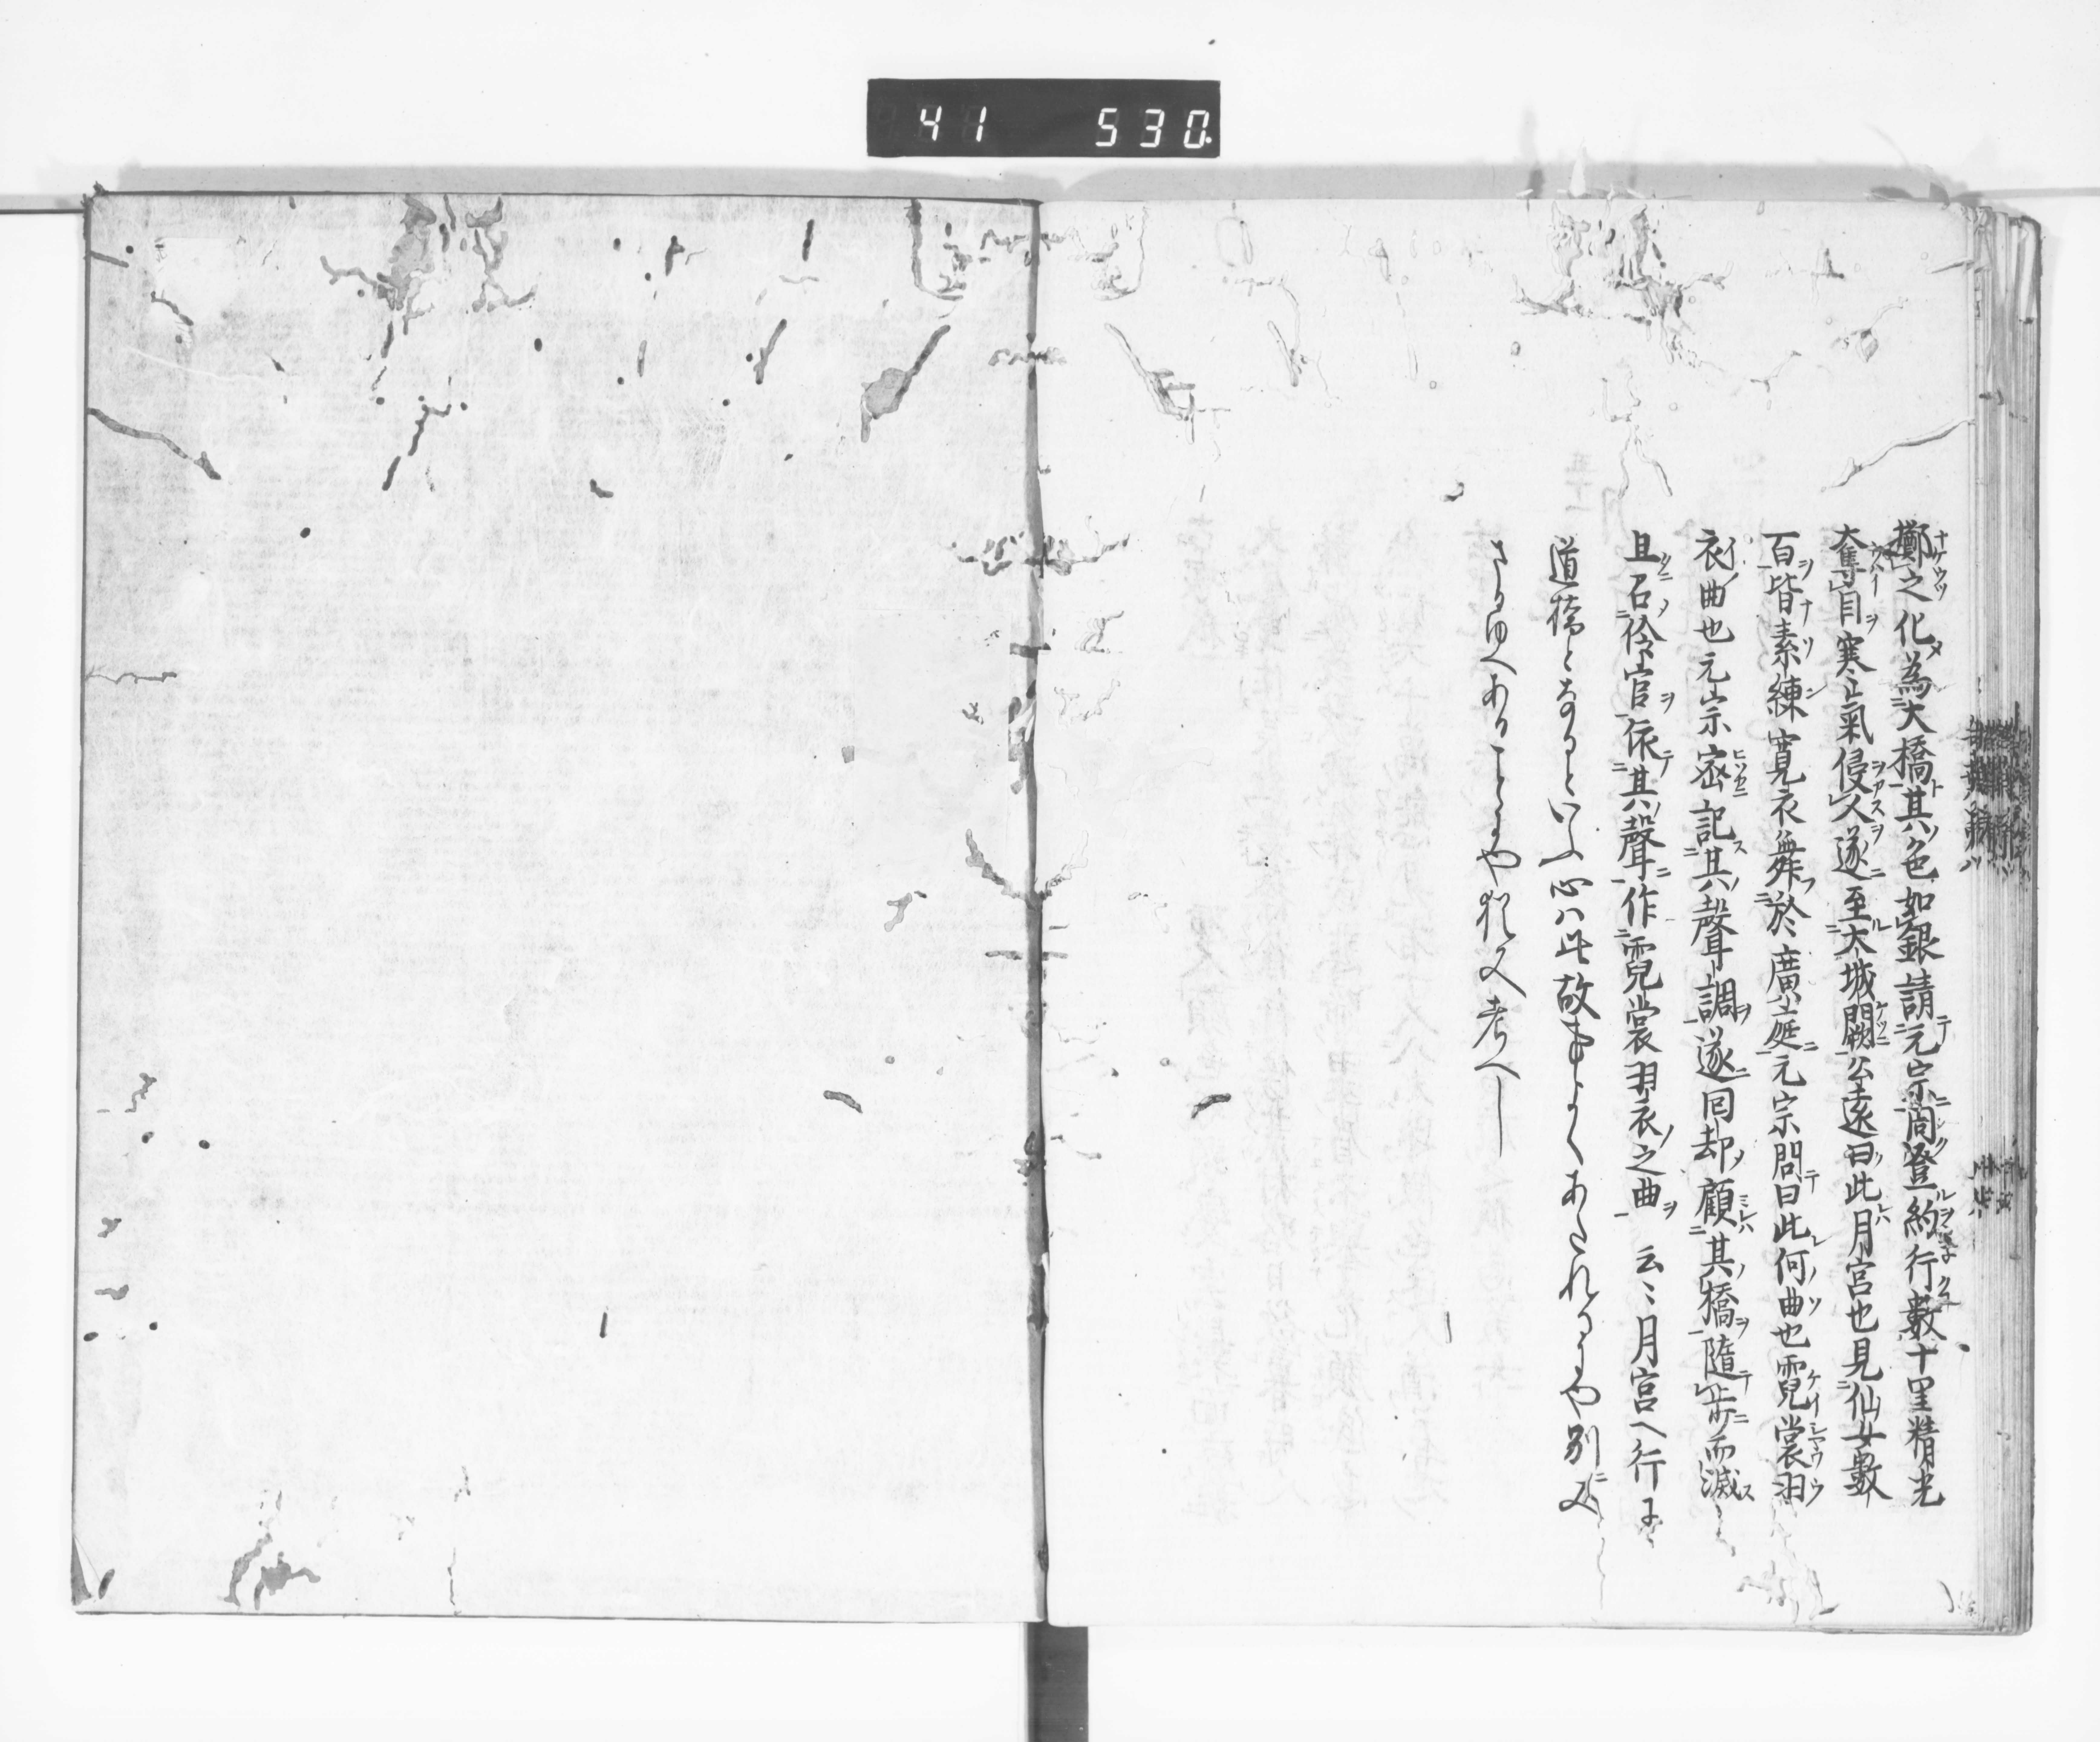 41 530
擲之化為大橋其色如銀請元宗同登約行數十里精光
奪目寒氣侵人遂至大城闕公遠曰此月宮也見仙女數
百皆素練寛衣舞於廣庭元宗問曰此何曲也霓裳羽
衣曲也元宗密記其聲調遂回却顧其橋隨歩而滅
且召伶官依其聲作霓裳羽衣之曲 云々月宮へ行に
道橋となるといふ心ハ此故事よくあたれるにや別に又
さるゆへあることにや猶又考へし